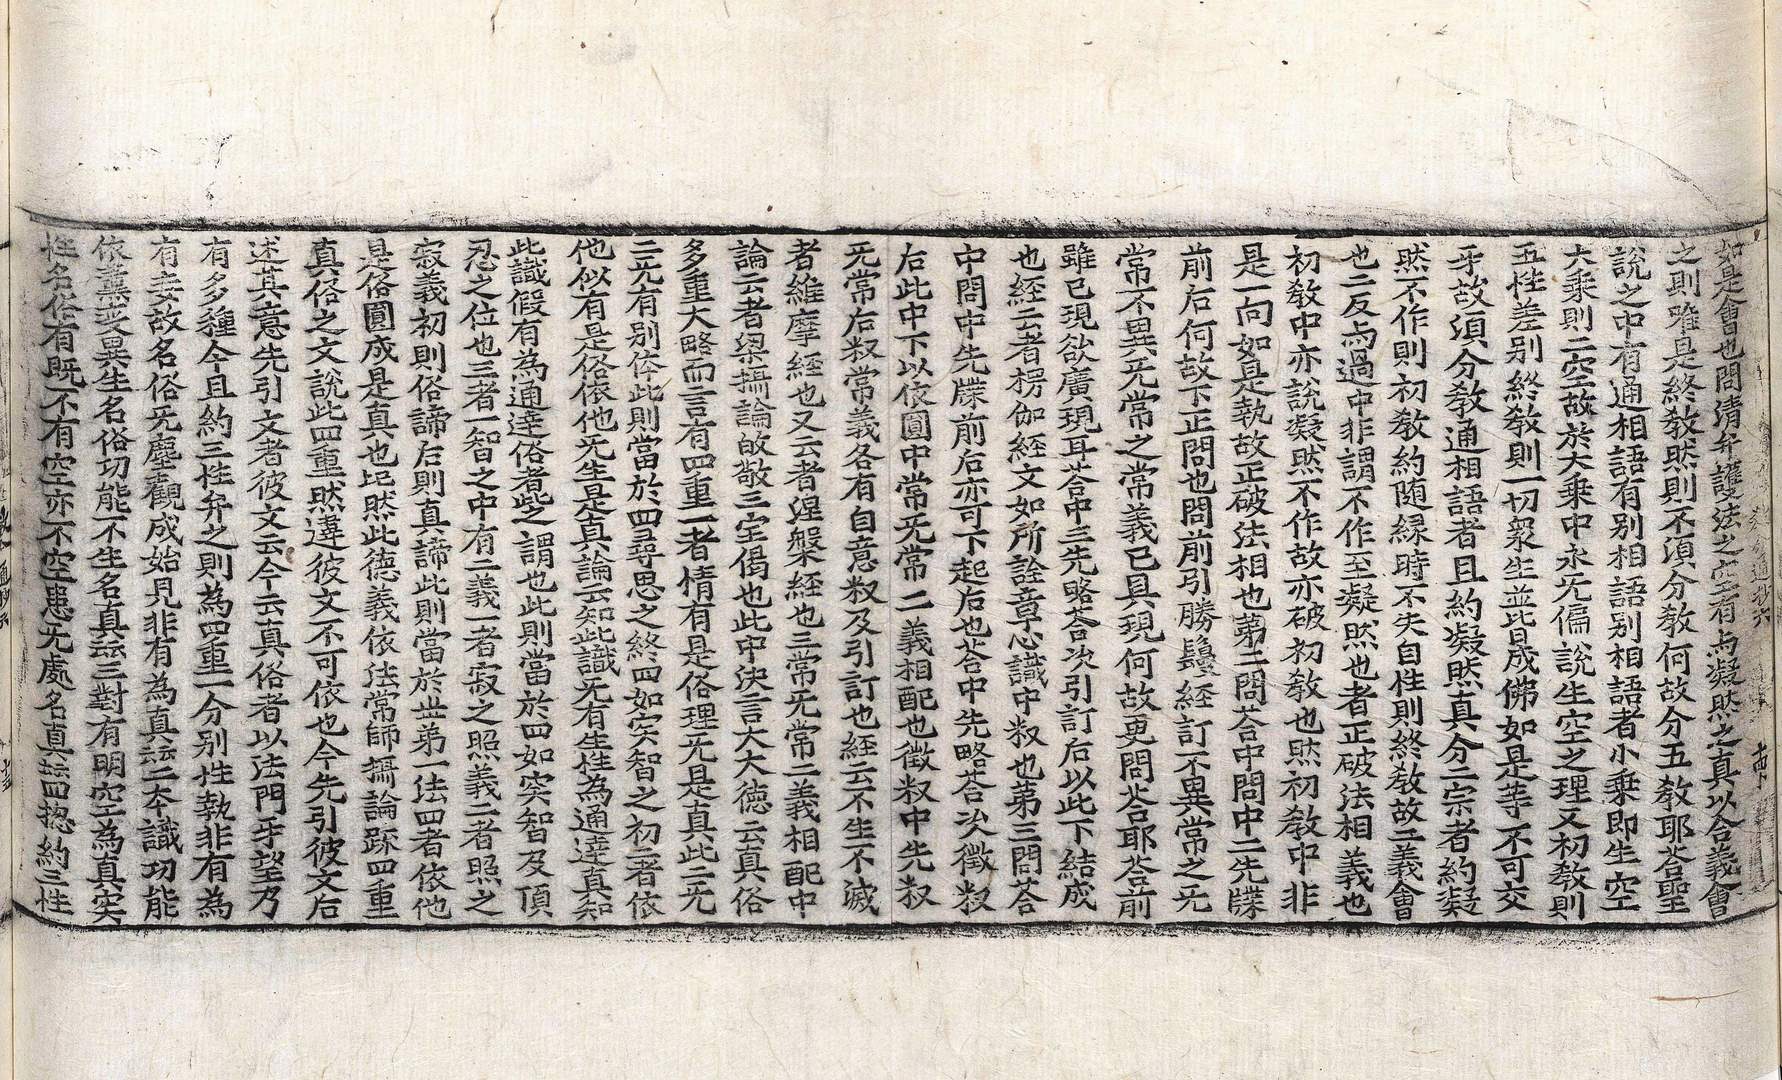 如是會也問清弁護法之空有与凝然之真以合義會
之則唯是終教然則不須分教何故分五教耶荅聖
說之中有通相語有別相語別相語者小乗即生空
大乗則二空故於大乗中永无偏說生空之理又初教則
五性差別終教則一切衆生並皆成佛如是等不可交
乎故須分教通相語者且約凝然真分二宗者約凝
然不作則初教約随緣時不失自性則終教故二義會
也二反与過中非謂不作至凝然也者正破法相義也
初教中亦說凝然不作故亦破初教也然初教中非
是一向如是執故正破法相也第二問荅中問中二先牒
前后何故下正問也問前引勝鬘経訂不異常之无
常不異无常之常義已具現何故更問荅耶荅前
雖已現欲廣現耳荅中三先略荅次引訂后以此下結成
也経云者楞伽経文如所詮章心識中叙也第三問荅
中問中先牒前后亦可下起后也荅中先略荅次徴叙
后此中下以依圓中常无常二義相配也徴叙中先叙
无常后叙常義各有自意叙及引訂也経云不生不滅
者維摩経也又云者涅槃経也三常无常二義相配中
論云者梁攝論故敬三宝偈也此中決言大大德云真俗
多重大略而言有四重一者情有是俗理无是真此二无
二无有別体此則當於四尋思之終四如实智之初二者依
他似有是俗依他无生是真論云知此識无有生性為通達真知
此識假有為通達俗者此之謂也此則當於四如实智及頂
忍之位也三者一智之中有二義一者寂之照義二者照之
寂義初則俗諦后則真諦此則當於並第一法四者依他
是俗圓成是真也記然此德義依法常師攝論䟽四重
真俗之文說此四重然違彼文不可依也今先引彼文后
述其意先引文者彼文云今云真俗者以法門乎望乃
有多種今且約三性弁之則為四重一分別性執非有為
有妄故名俗无塵觀成始見非有為真二本識功能
依熏变異生名俗功能不生名真三對有明空為真实
性名俗有既不有空亦不空患无處名真四惣約三性